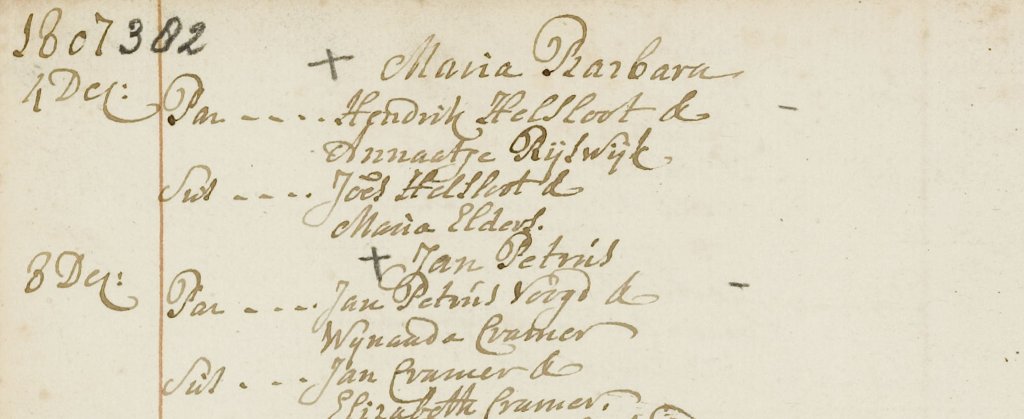 1807 382
+ Maria Barbara
4 Dec:
Par ---- Hendrik Helsloot &
Annaatje Rijswijk.
Sus ---- Joēs Helsloot &
Maria Elders.
+ Jan Petrus
8 Dec:
Par ---- Jan Petrus Voogd &
Wynanda Cramer
Sus ---- Jan Cramer &
Elizabeth Cramer.